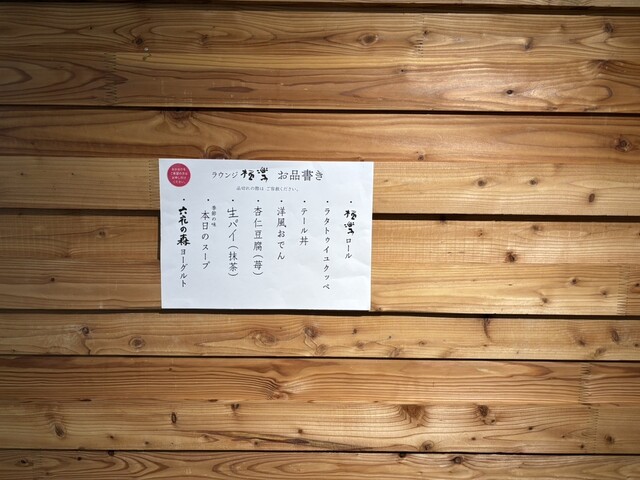 ラウンジ 極楽 お品書き
品切れの際は ご容赦ください。
・極楽ロール
・ラタトゥイユクッペ
・テール丼
・洋風おでん
・杏仁豆腐(苺)
・生パイ(抹茶)
季節の味
・本日のスープ
・六花の森ヨーグルト